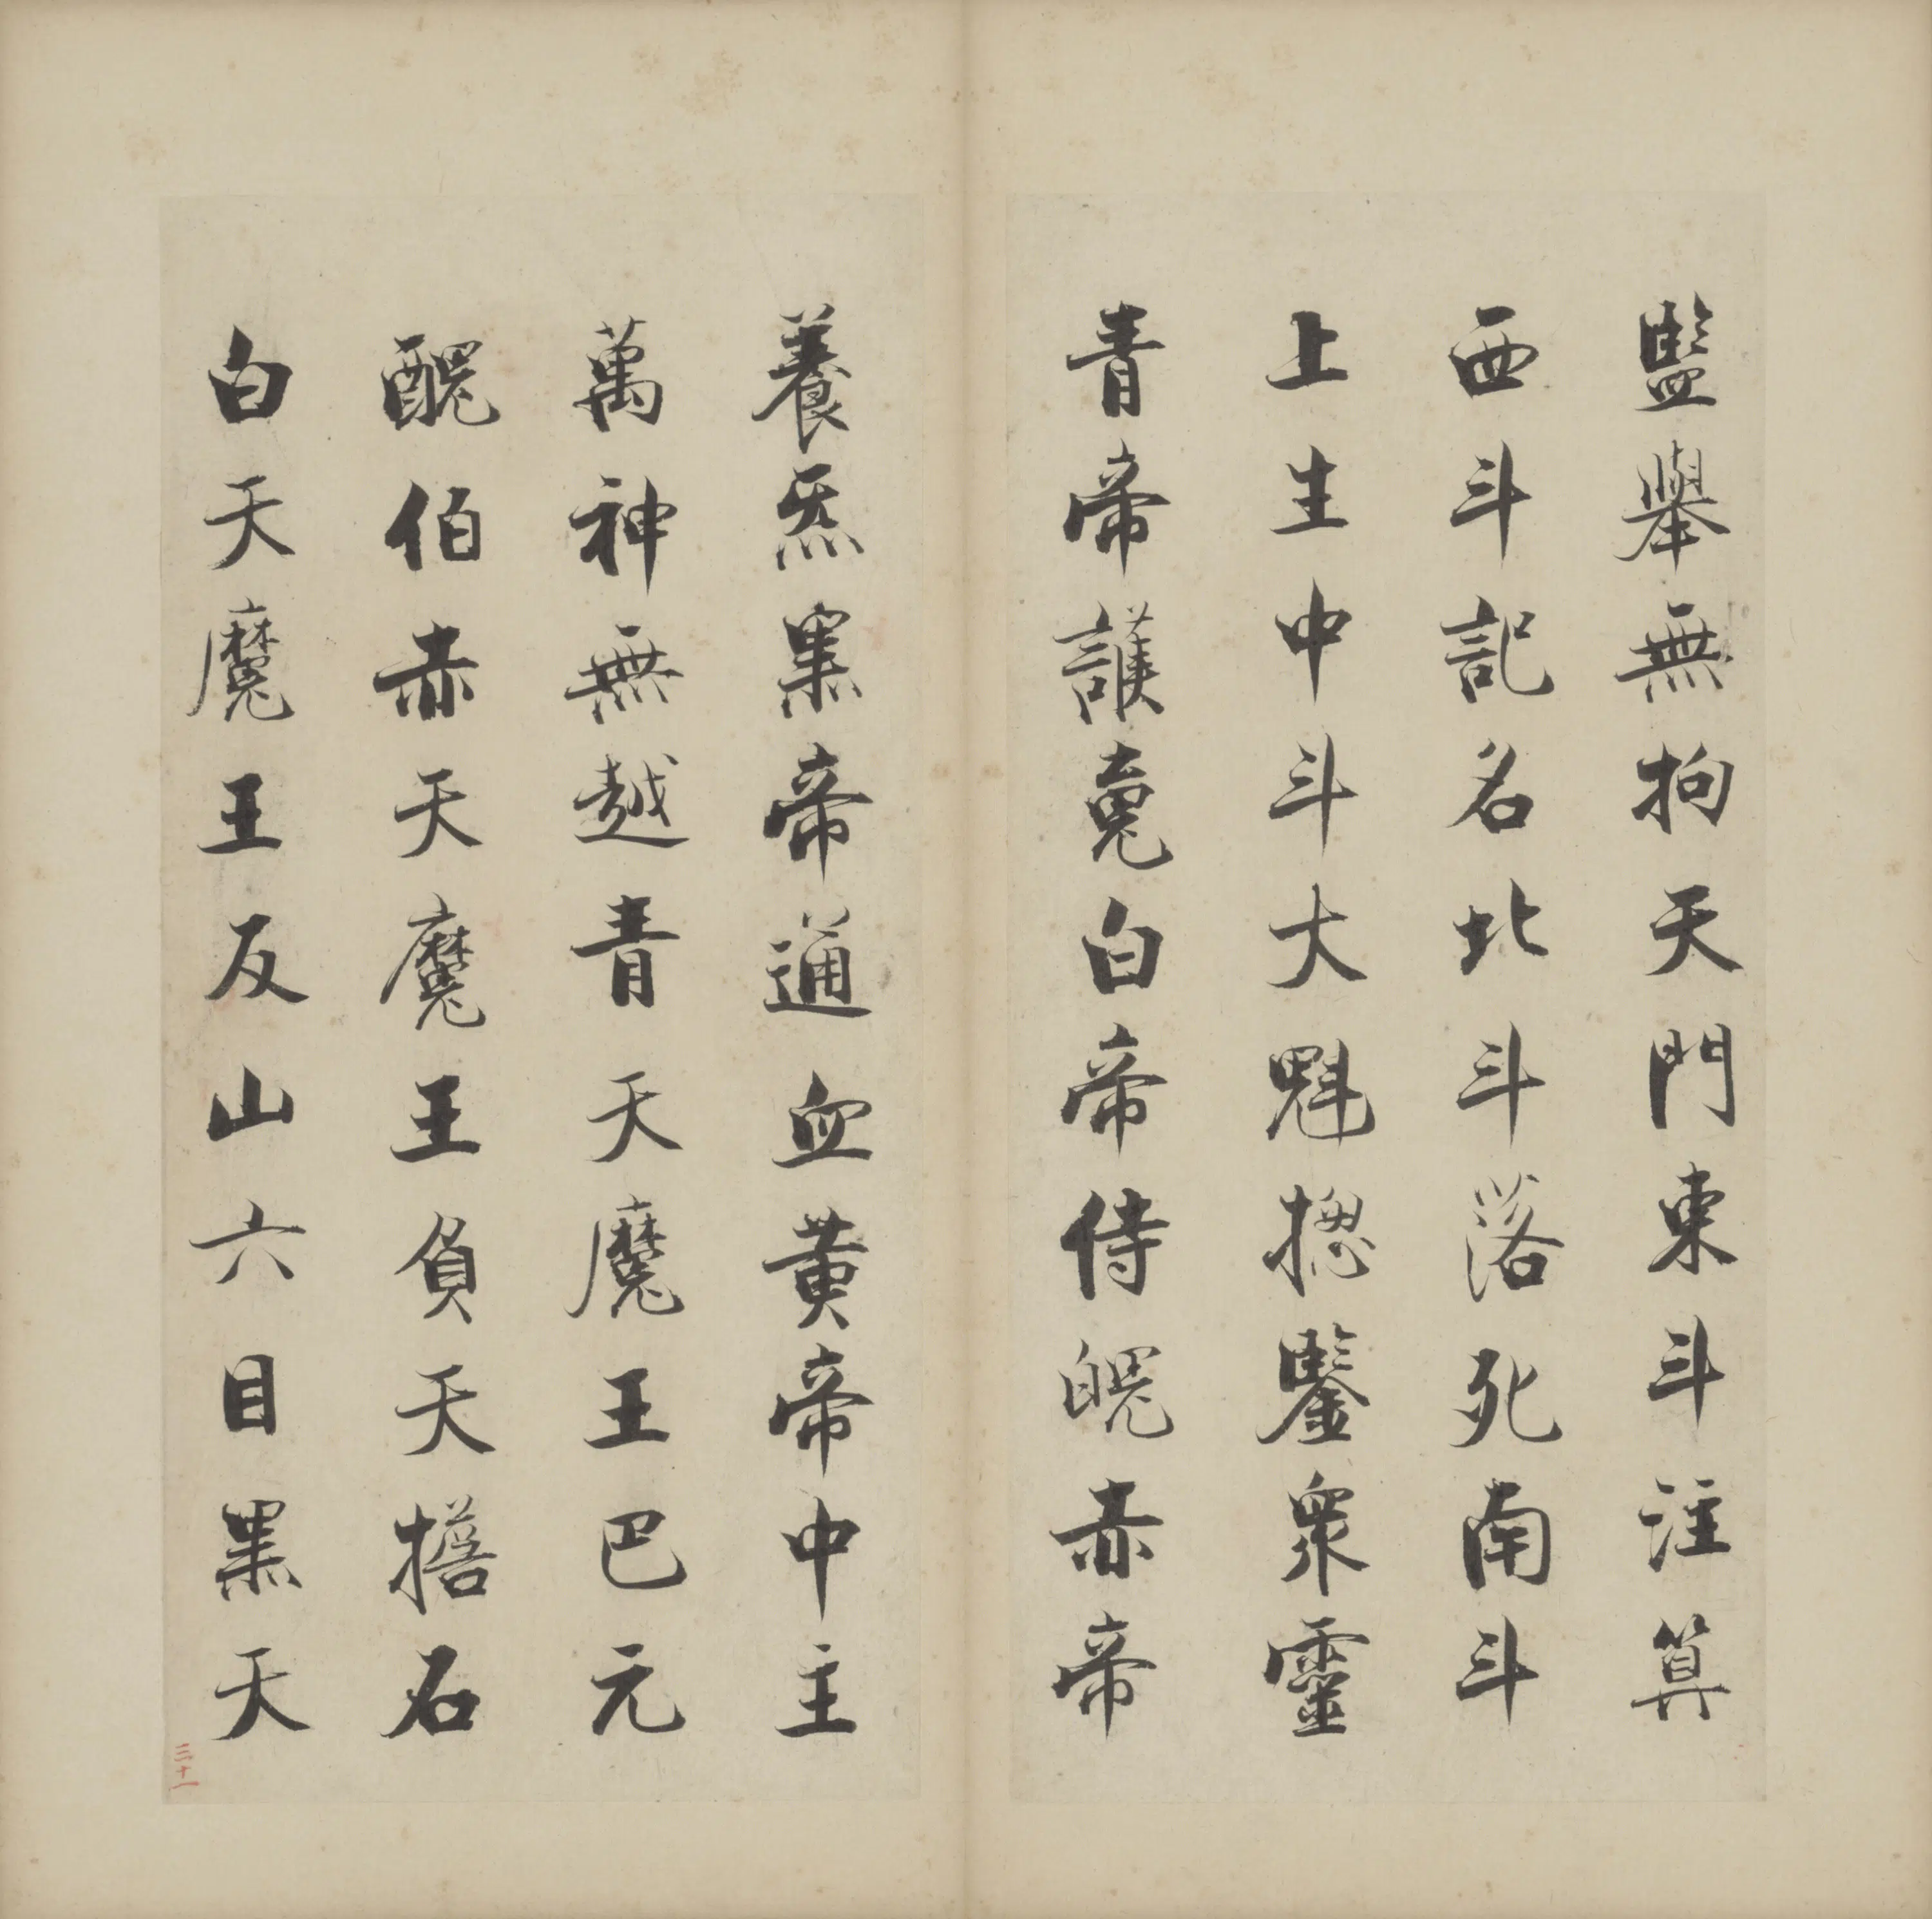 監舉無拘天門東斗注算
西斗記名北斗落死南斗
上生中斗大魁摠鑒眾靈
青帝護䰟白帝侍魄赤帝
養炁黑帝通血黃帝中主
萬神無越青天魔王巴元
醜伯赤天魔王負天擔石
白天魔王反山六目黑天
三十一